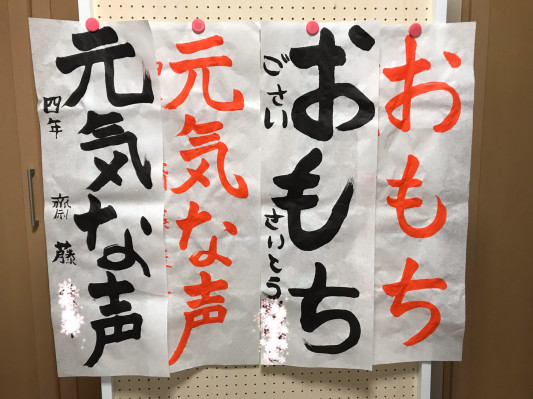 おもち
おもち
ごさい
さいとう
元気な声
元気な声
四年
齋
藤